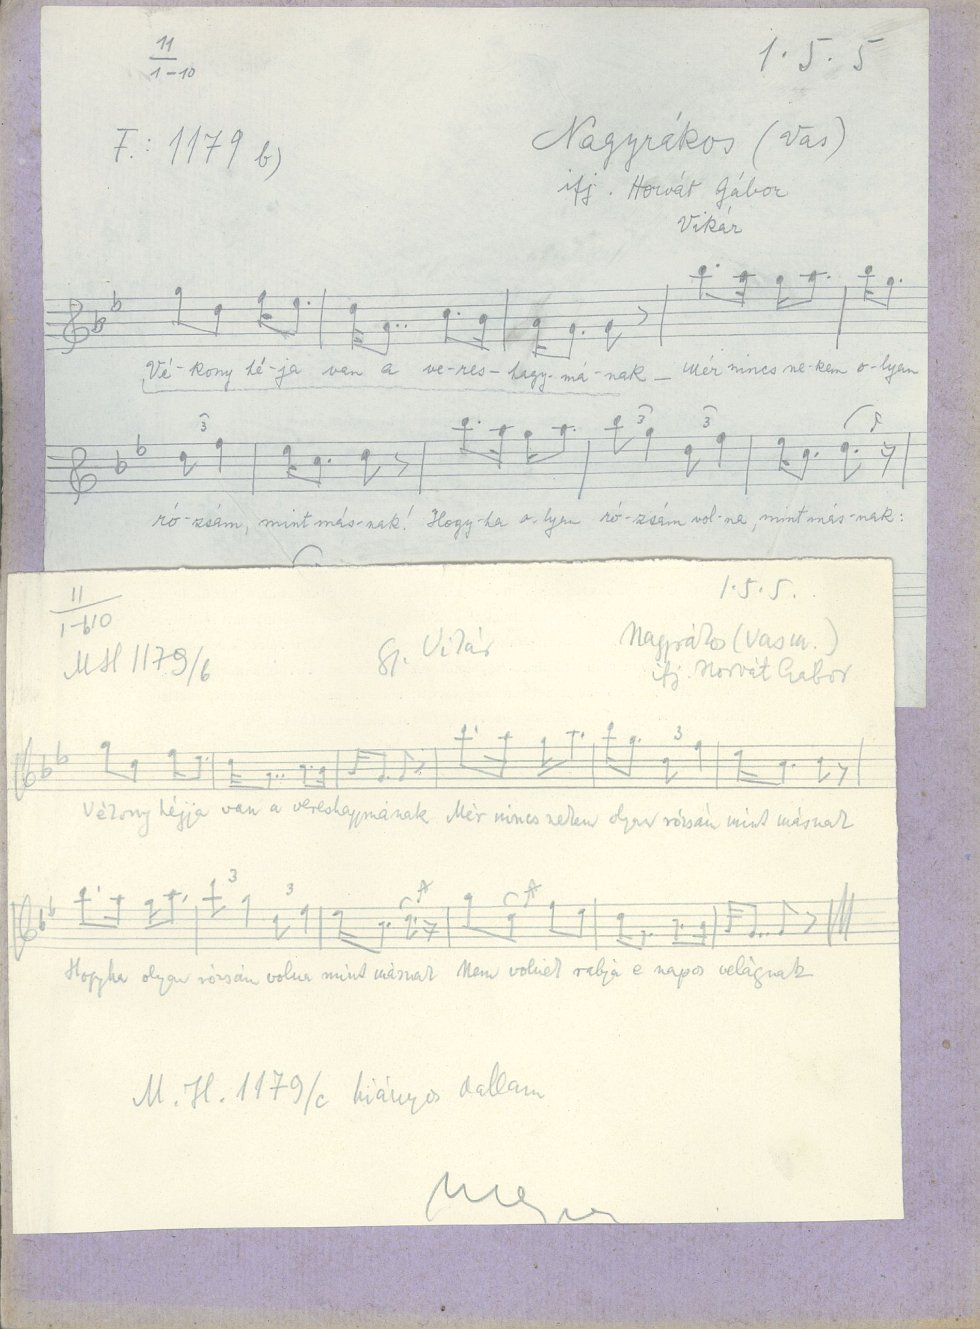 11
1-10
1. 5. 5
F.: 1179 b)
Nagyrákos (Vas)
ifj. Horvát Gábor
Vikár
Vé-kony hé-ja van a ve-res-hagy-má-nak _ Mér nincs ne-kem o-lyan
3
ró-zsám, mint más-nak! Hogy-ha o-lyan ró-zsám vol-na, mint más-nak:
3 3
11
1-10
1.5.5.
MH 1179/b
gy. Vikár
Nagyrákos (Vasm.)
ifj. Horvát Gábor
3
Vékony héjja van a vereshagymának Mér nincs nekem olyan rózsám mint másnak
3 3
Hogyha olyan rózsám volna mint másnak Nem volnék rabja e napos velágnak
M.H. 1179/c hiányos dallam